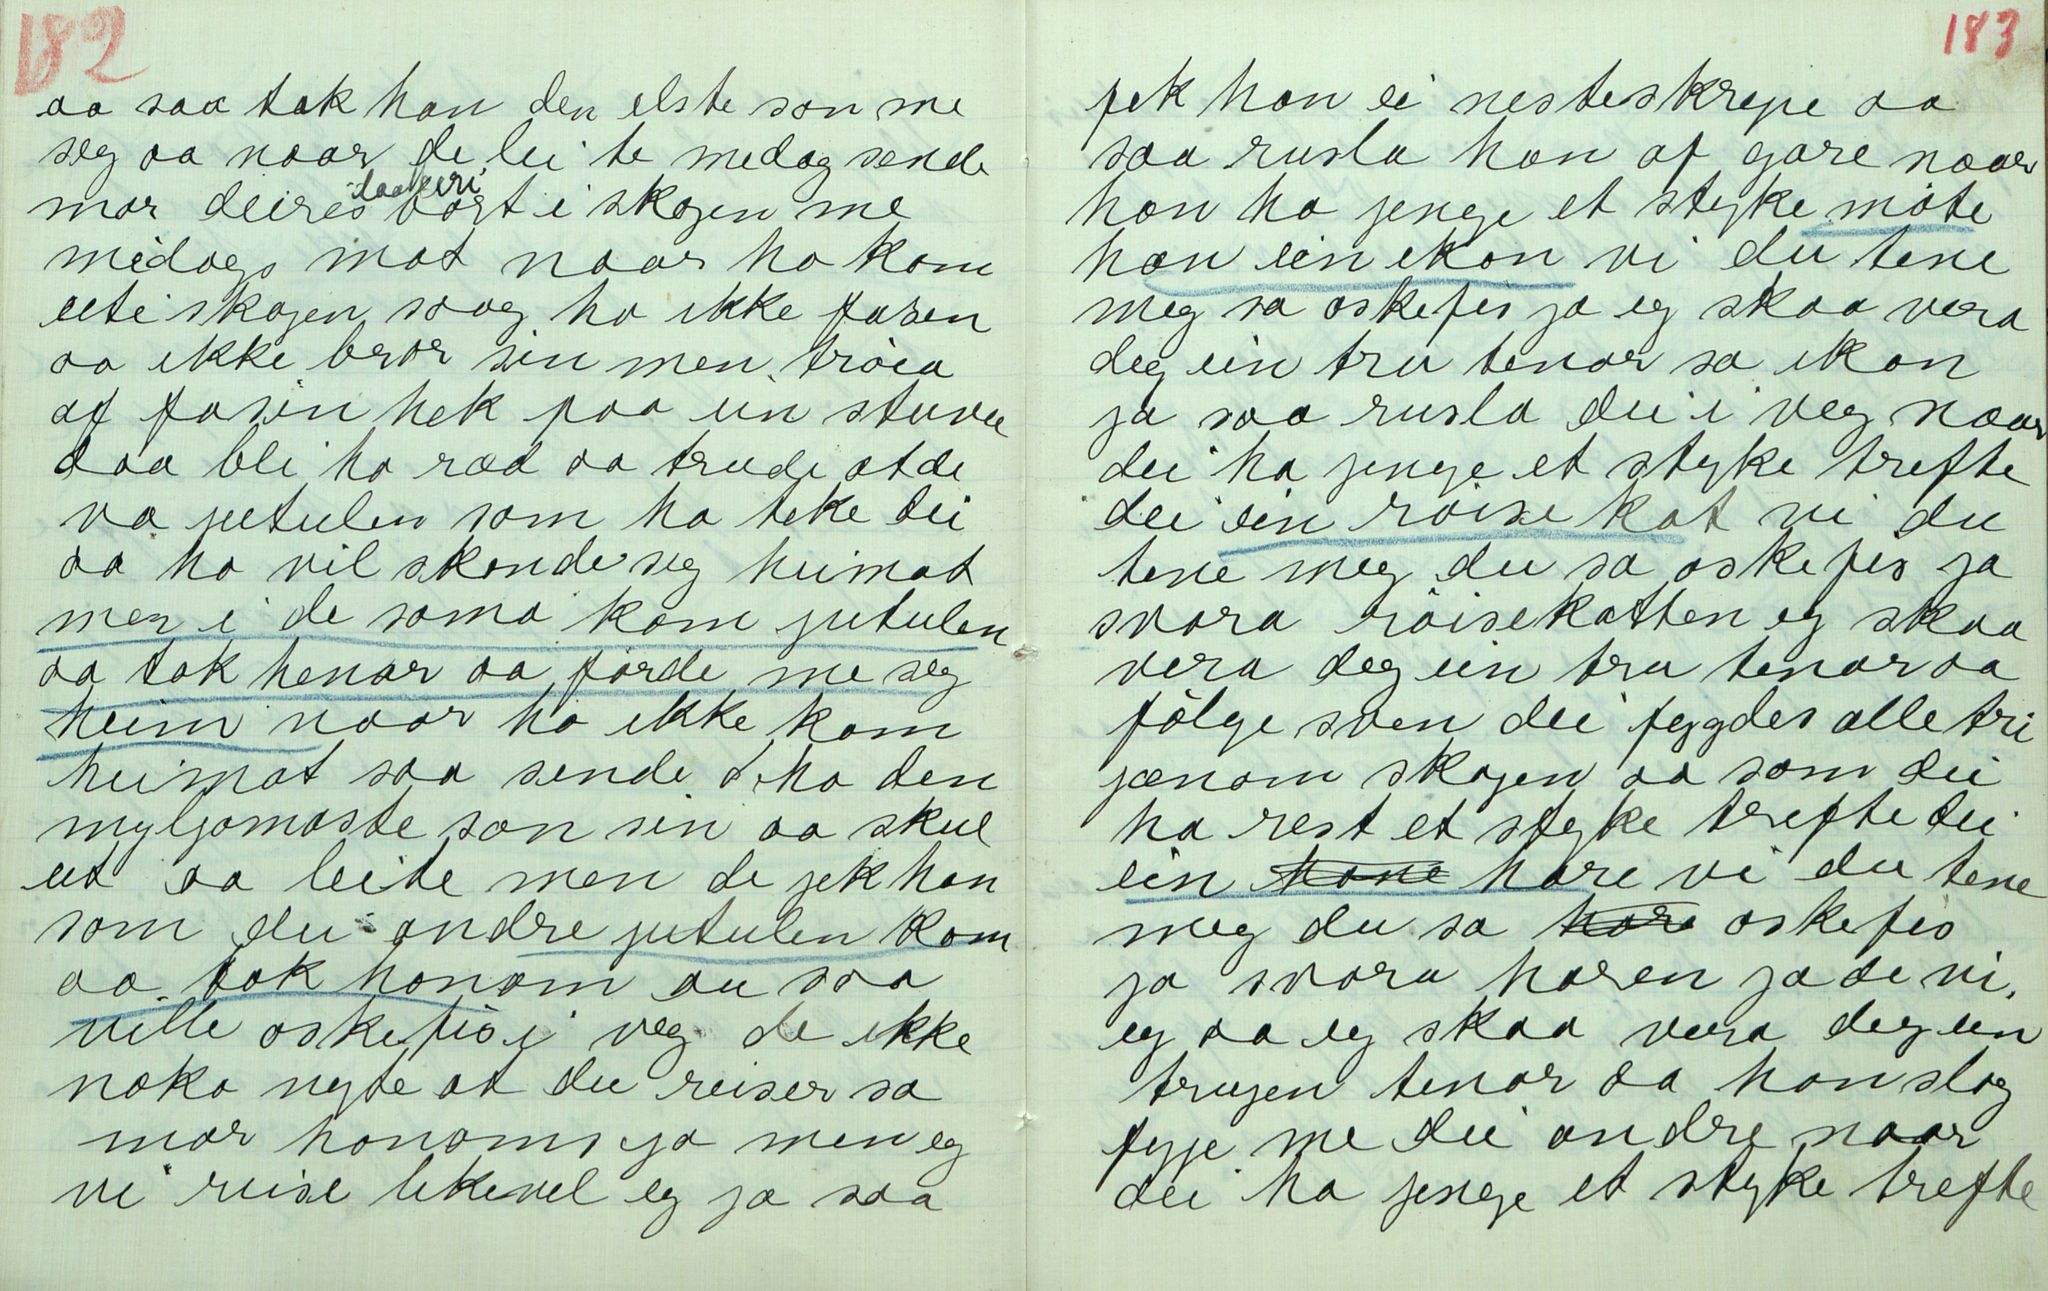 182
aa saa tok han den elste son me
seg aa naar de lei te medag sende
mor deires daateri bort i skogen me
midags mat naar ho kom
ut i skogen saag ho ikke faren
aa ikke bror sin men tröia
af fasin hek paa ein stuvu
daa blei ho ræd aa trude at de
va jutulen som ha teke dei
aa ho vil skonde seg heimat
men i de soma kom jutulen
aa tok henar aa förde me seg
heim naar ho ikke kom
heimat saa sende ho den
myljomaste son sin aa skul
ut aa leite men de jek han
som dei andre jutulen kom
aa tok honom au saa
ville oskefis i veg de ikke
noko nyte at du reiser sa
mor honoms ja men eg
vi reise likevel eg ja saa
183
fek han ei nesteskrepe aa
saa rusla han af gare naar
han ha jenge et styke möte
han ein ikon vi du tene
meg sa oskefis ja eg skaa vera
deg ein tru tenar sa ikon
ja saa rusla dei i veg naar
dei ha jenge et styke trefte
dei ein röise kat vi du
tene meg du sa oskefis ja
svora röisekatten eg skaa
vera deg ein tru tenar aa
fölge sven dei fygdes alle tri
jænom skogen aa som dei
ha rest et styke trefte dei
ein hane hare vi du tene
meg du sa hare oskefis
ja svora haren ja de vi
eg aa eg skaa vera deg ein
trugen tenar aa han slog
fyje me dei andre naar
dei ha jenge et styke trefte